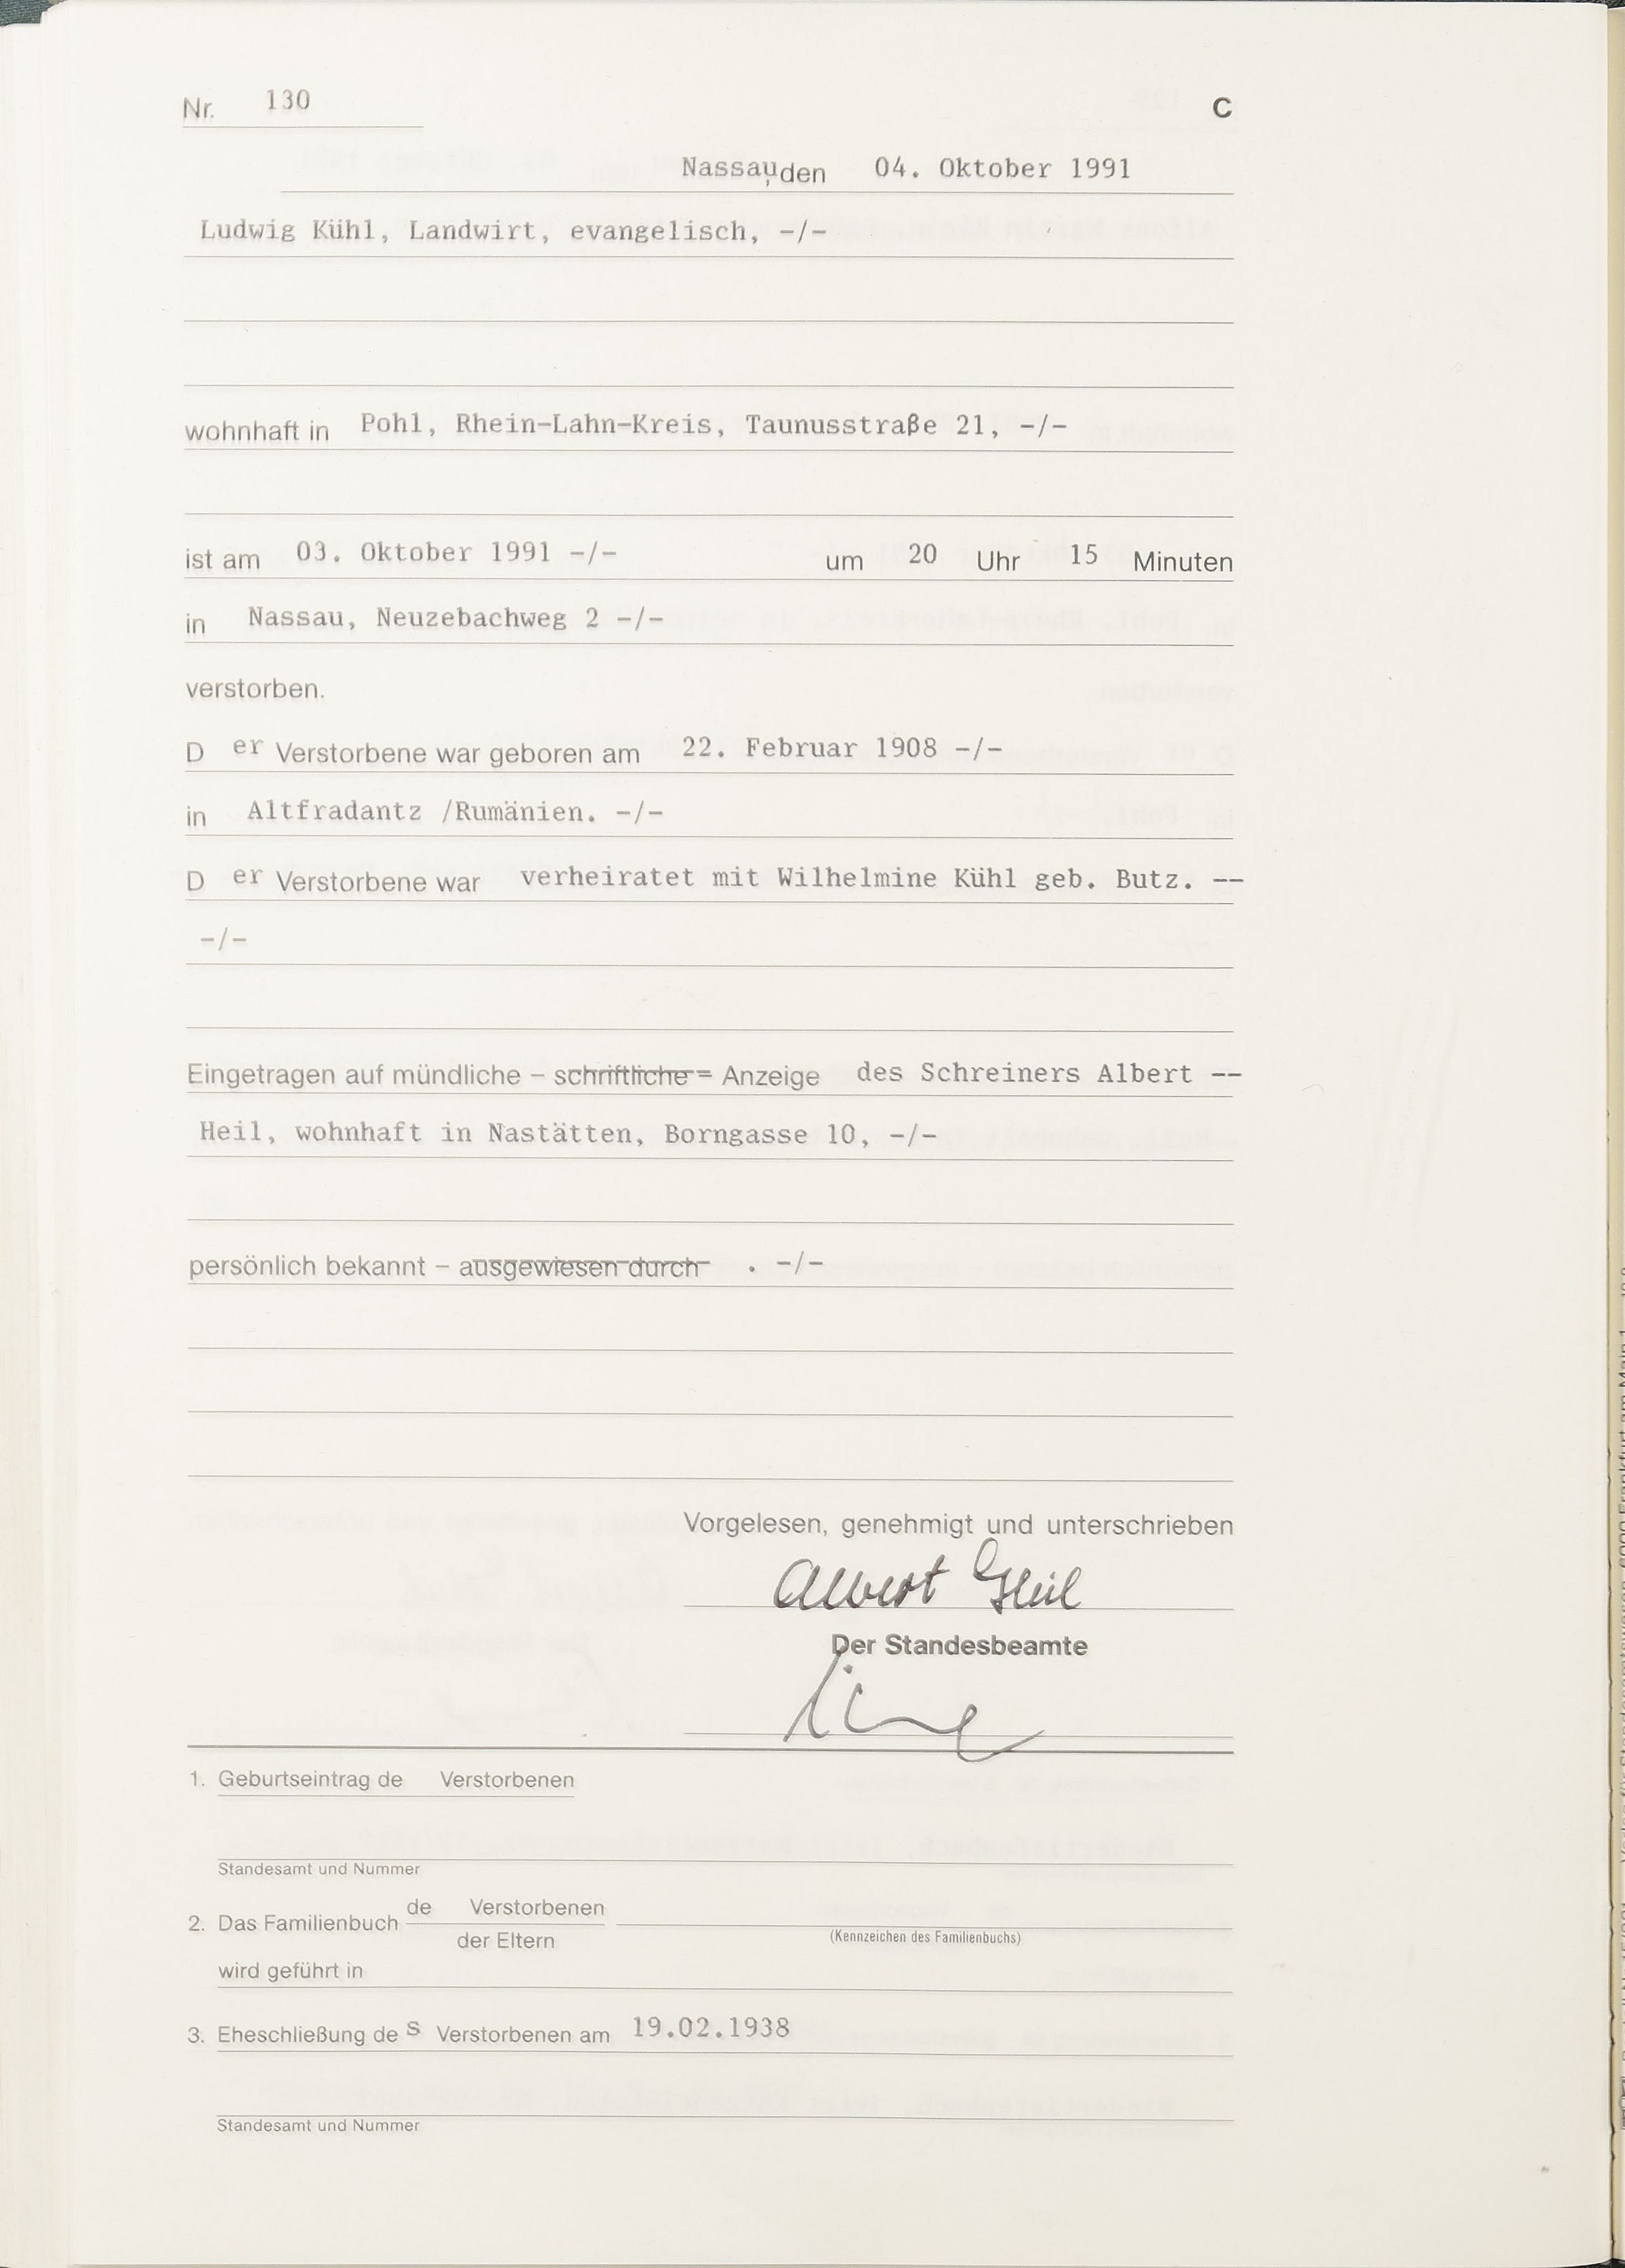 Nr. 130 C
Nassau, den 04. Oktober 1991
Ludwig Kühl, Landwirt, evangelisch, -/-
wohnhaft in Pohl, Rhein-Lahn-Kreis, Taunusstraße 21, -/-
ist am 03. Oktober 1991 -/- um 20 Uhr 15 Minuten
in Nassau, Neuzebachweg 2 -/-
verstorben.
D er Verstorbene war geboren am 22. Februar 1908 -/-
in Altfradantz /Rumänien. -/-
D er Verstorbene war verheiratet mit Wilhelmine Kühl geb. Butz. --
-/-
Eingetragen auf mündliche – schriftliche – Anzeige des Schreiners Albert --
Heil, wohnhaft in Nastätten, Borngasse 10, -/-
persönlich bekannt – ausgewiesen durch . -/-
Vorgelesen, genehmigt und unterschrieben
Albert Heil
Der Standesbeamte
1. Geburtseintrag de Verstorbenen
Standesamt und Nummer
de Verstorbenen
2. Das Familienbuch
der Eltern
(Kennzeichen des Familienbuchs)
wird geführt in
3. Eheschließung de s Verstorbenen am 19.02.1938
Standesamt und Nummer